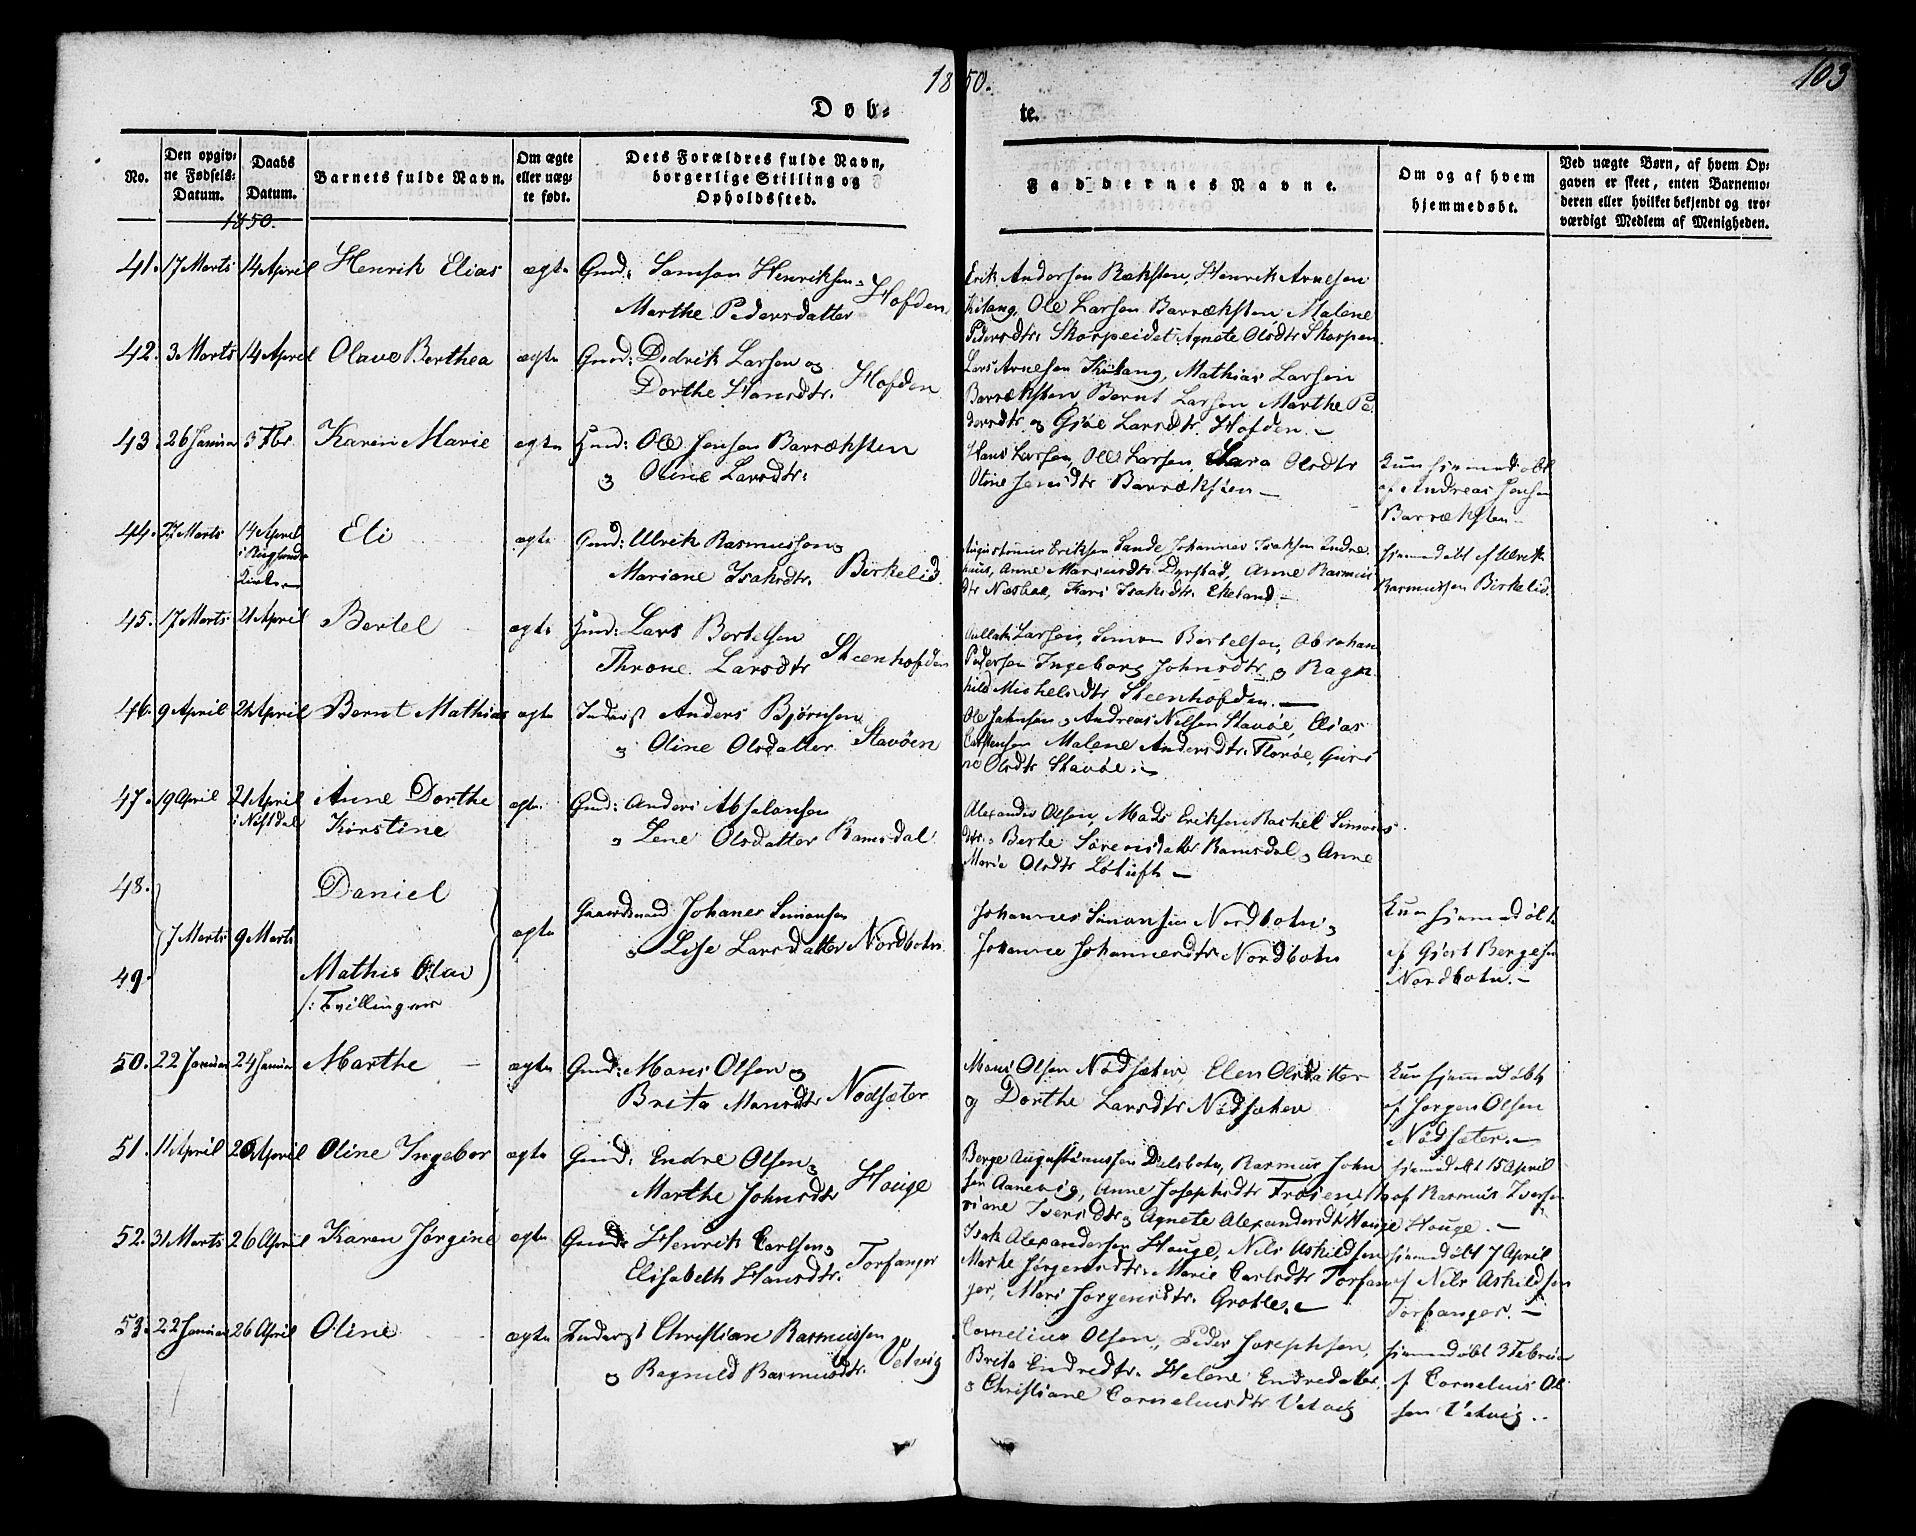 1850.
103
Døb-te.
No.
Den opgivne Fødsels-Datum.
Daabs Datum.
Barnets fulde Navn.
Om ægte eller uægte født.
Dets Forældres fulde Navn, borgerlige Stilling og Opholdssted.
Faddernes Navne.
Om og af hvem hjemmedøbt.
Ved uægte Børn, af hvem Opgaven er skeet, enten Barnemoderen eller hvilket bekjendt og troværdigt Medlem af Menigheden.
1850.
41. 17 Marts 14 April Henrik Elias ægte Gmd: Samson Henriksen
Marthe Pedersdatter Hofden
Erik Andersen Ræksten, Henrik Arnesen
Ole Larsen Barræksten Malene
Pedersdtr. Skorpeidet Agnete Olsdtr Skorpen
42. 3 Marts 14 April Olave Berthea ægte Gmd: Didrik Larsen og
Dorthe Hansdtr. Hofden
Lars Arnesen Mathias Larsen
Barræksten Bernt Larsen Marthe Pe
dersdtr. og Larsdtr. Hofden.
43. 26 Januar 3 Fbr. Karen Marie ægte Gmd: Ole Jensen Barræksten
og Oline Larsdtr:
Hans Larsen, Ole Larsen, Olsdtr
Oline Jensdtr Barræksten
Kun hjemmedøbt
af Andreas Jensen
Barræksten
44. 27 Marts 14 April Eli ægte Gmd: Ulrik Rasmussen og
Mariane Isaksdtr. Birkelid.
Augustinus Eriksen Sande, Johannes Isaksen Indre
huus, Anne Dyrstad, Anne Rasmus
dtr Næsbøe, Kari Isaksdtr. Ekeland.
hjemmedøbt af Ulrik
Rasmussen Birkelid.
45. 17 Marts 21 April Bertel ægte Gmd: Lars Bertelsen
Throne Larsdtr Steenhofden
Larsen, Simon Bertelsen, Abraham
Pedersen Ingeborg Johnsdtr og Ragn
hild Mickelsdtr Steenhofden.
46. 9 April 21 April Bernt Mathias ægte Inderst Anders Bjørnsen
og Oline Olsdatter Stavøen
Ole Johnsen og Andreas Nilsen Stavøe, Elias
Carstensen Malene Andersdtr. Florøe, Guri
ne Olsdtr Stavøe.
47. 19 April 21 April Anne Dorthe
Kirstine ægte Gmd: Anders Absalonsen
og Lene Olsdatter Ramsdal
Alexander Olsen, Mads Eriksen Rachel Simons
dtr. Berte Sørensdatter Ramsdal og Anne
Marie Olsdtr
48. Daniel
7 Marts 9 Marts ægte Gaardmand Johanes Simonsen
og Lise Larsdatter Nordbotn
Johannes Simonsen Nordbotn og
Johanne Johannesdtr Nordbotn
Kun hjemmedøbt
af Gjert Bergesen
Nordbotn.
49. Mathis Olai
/: Tvillinger
50. 22 Januar 24 Januar Marthe ægte Gmd: Mons Olsen og
Brita Monsdtr Nødsæter
Mons Olsen Nødsæter, Elen Olsdatter
og Dorthe Larsdtr Nødsæter
Kun hjemmedøbt
af Jørgen Olsen
Nødsæter.
51. 11 April 26 April Oline Ingebor ægte Gmd: Endre Olsen og
Marthe Johnsdtr Houge
Berge Augustinussen Rasmus John
sen Aanevig, Anne Josephsdtr Ma
riane Iversdtr og Agnete Alexandersdtr Houge
hjemmedøbt 15 April
af Rasmus Iversen
Houge.
52. 31 Marts 26 April Karen Jørgine ægte Gmd: Henrik Carlsen og
Elisabeth Hansdtr. Torfanger
Isak Alexandersen Houge, Nils Askildsen
Marthe Jørgensdtr. Marie Carlsdtr Torfan
ger, Mari Jørgensdtr. Grotle.
hjemmedøbt 7 April
af Nils Askildsen
Torfanger.
53. 22 Januar 26 April Oline ægte Inderst Christian Rasmussen
og Ragnild Rasmusdtr. Vetvig
Cornelius Olsen, Peder Josephsen,
Brita Endredtr. Helene Endredatter,
og Christiane Corneliusdtr Vetvig
hjemmedøbt 3 Februar
af Cornelius Ol
sen Vetvig.